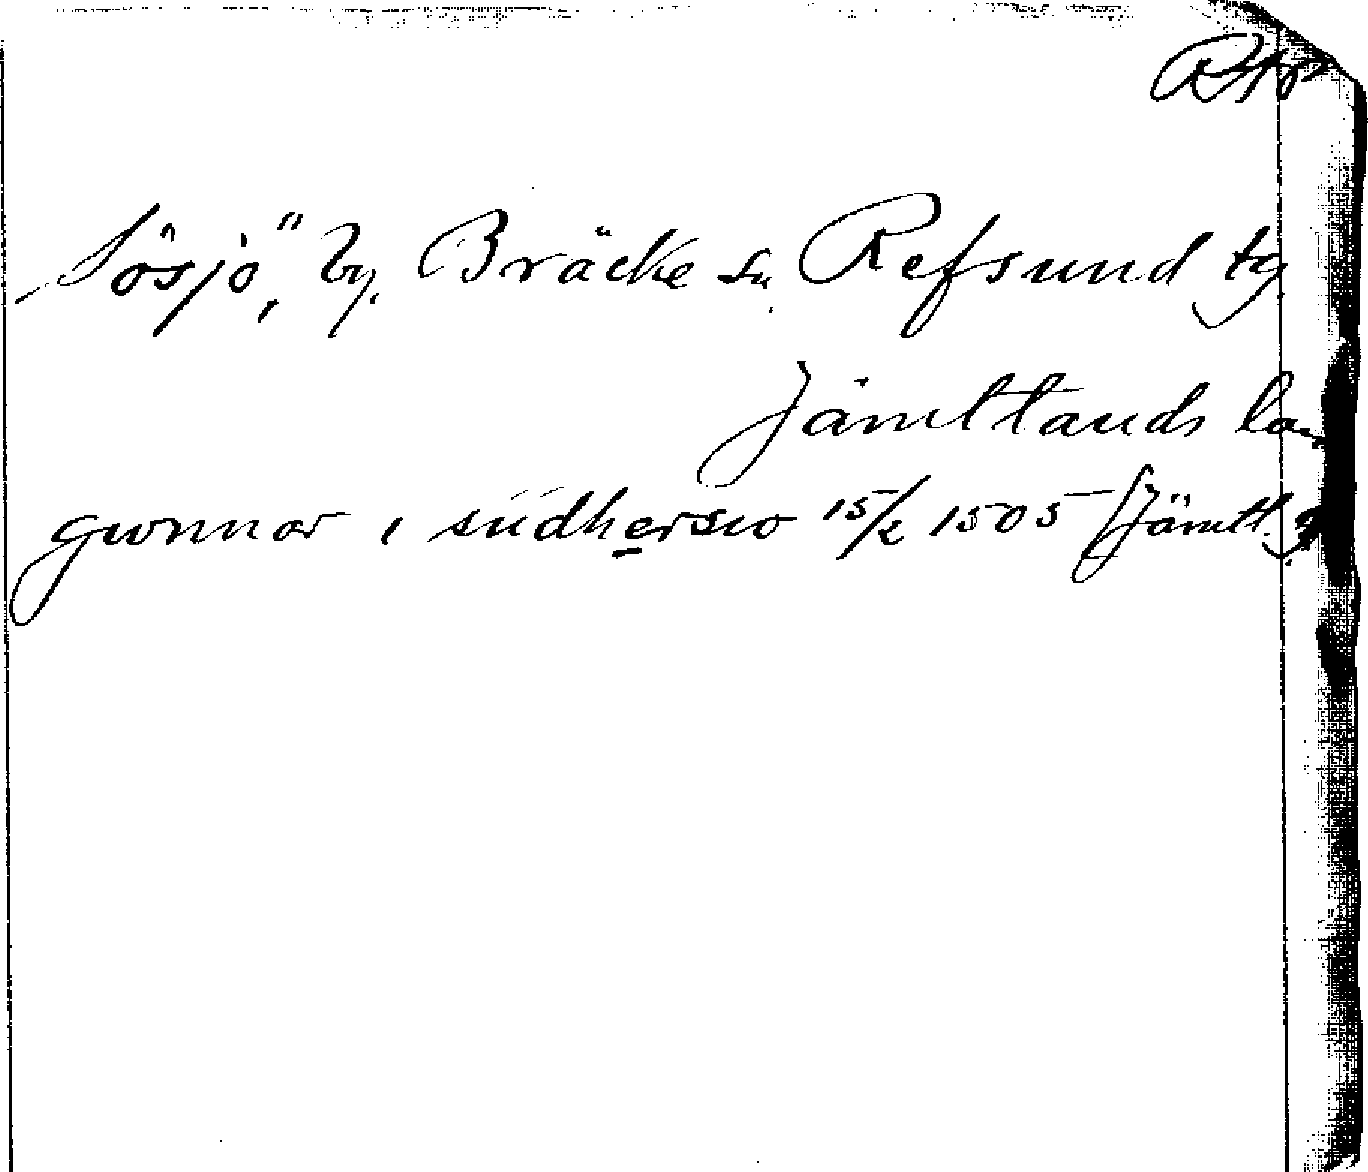 Sösjö," by. Bräcke sn. Refsund tg.
Jämtlands län
gwnnar i südhersio 15/2 1505 (Jämtl.